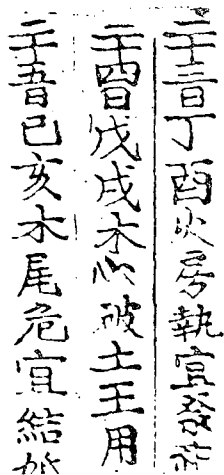 二十三日丁酉火房執宜祭祀
二十四日戊戌木心破土王用
二十五日己亥木尾危宜結婚